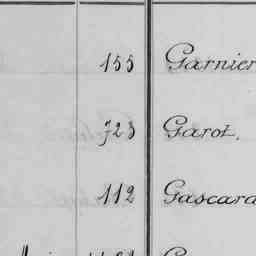 155 Garnier
723 Garot.
112 Gascard